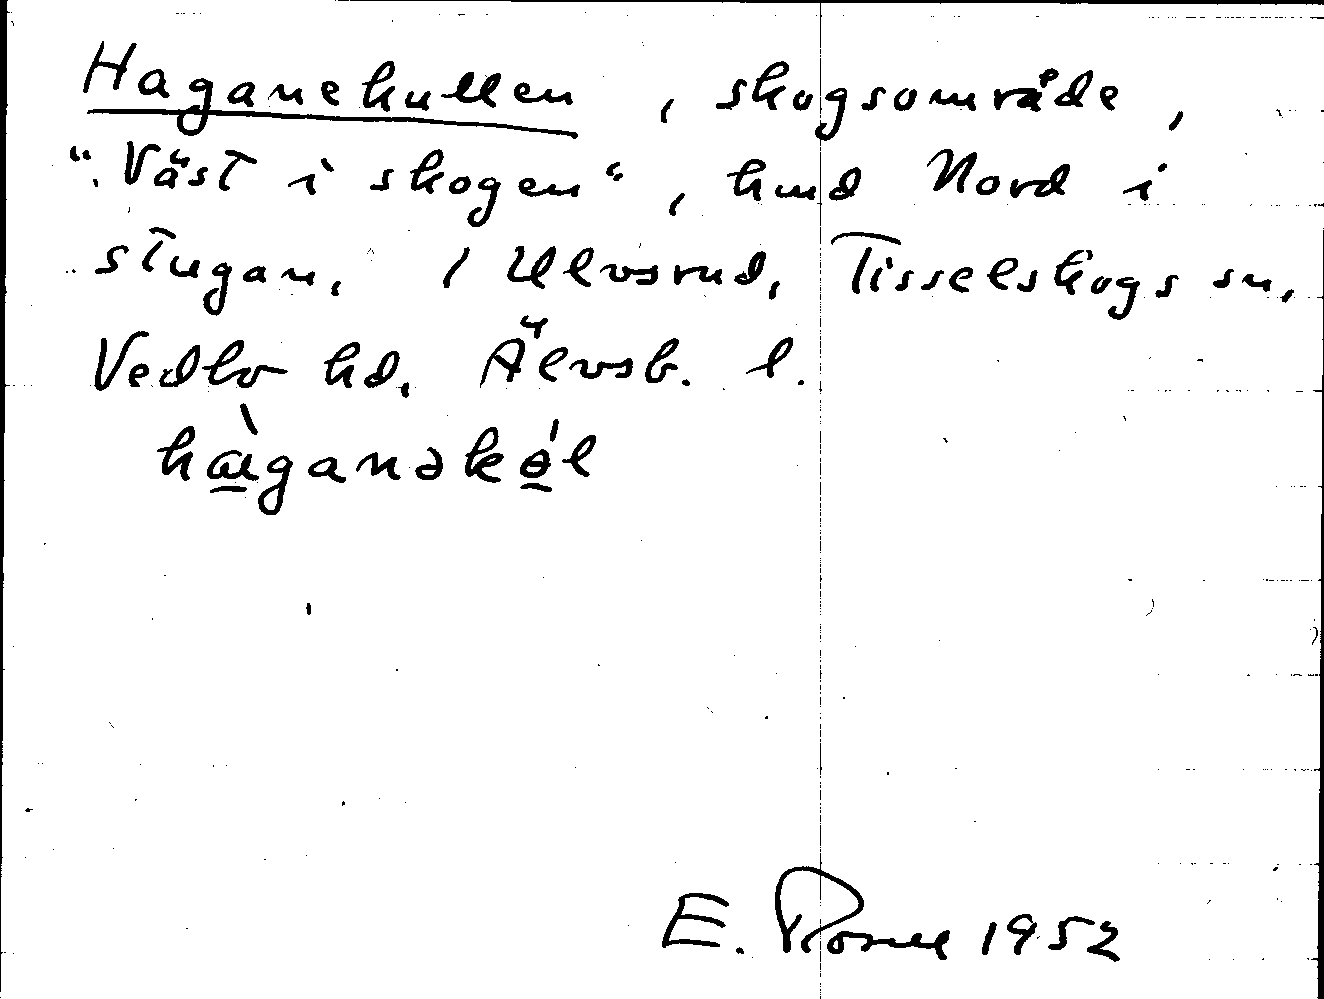 Haganekullen, skogsområde,
"Väst i skogen", hmd Nord i
stugan, i Ulvsrud, Tisselskogs sn,
Vedbo hd, Älvsb. l.
E. 1952